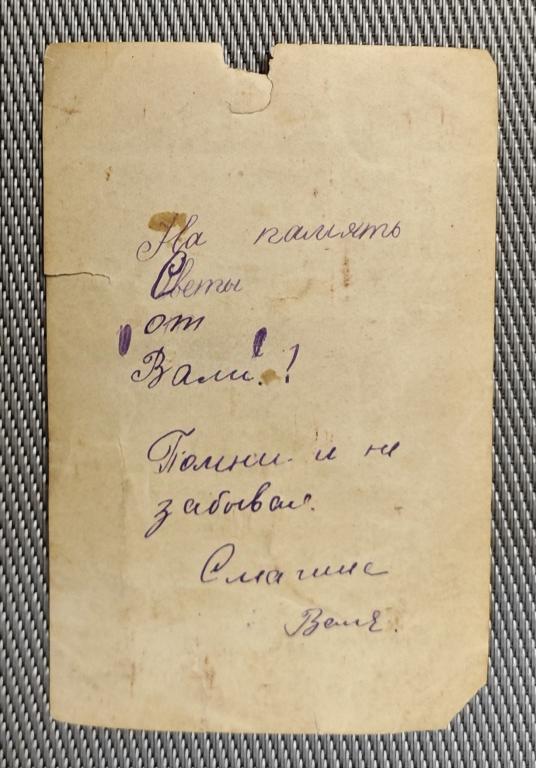 На память
Светы
от
Вали!
Помни и не
забывай.
Смагина
Валя.